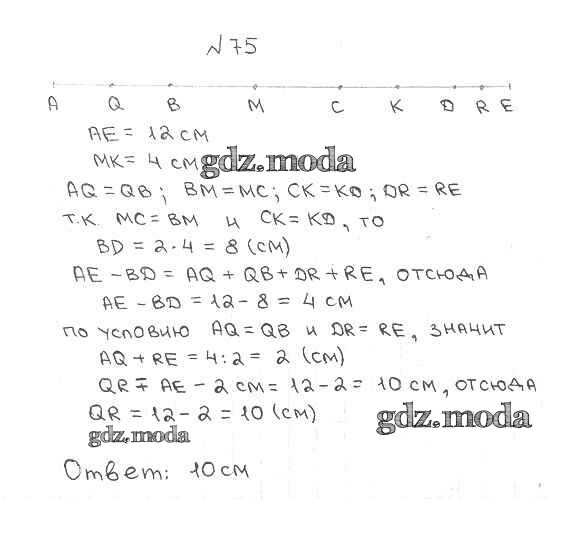 №75
A Q B M C K D R E
AE = 12 см
MK = 4 см gdz.moda
AQ = QB; BM = MC; CK = KD; DR = RE
т.к. MC = BM и CK = KD, то
BD = 2·4 = 8 (см)
AE − BD = AQ + QB + DR + RE, отсюда
AE − BD = 12 − 8 = 4 см
по условию AQ = QB и DR = RE, значит
AQ + RE = 4:2 = 2 (см)
QR = AE − 2 см = 12 − 2 = 10 см, отсюда
QR = 12 − 2 = 10 (см) gdz.moda
gdz.moda
Ответ: 10 см